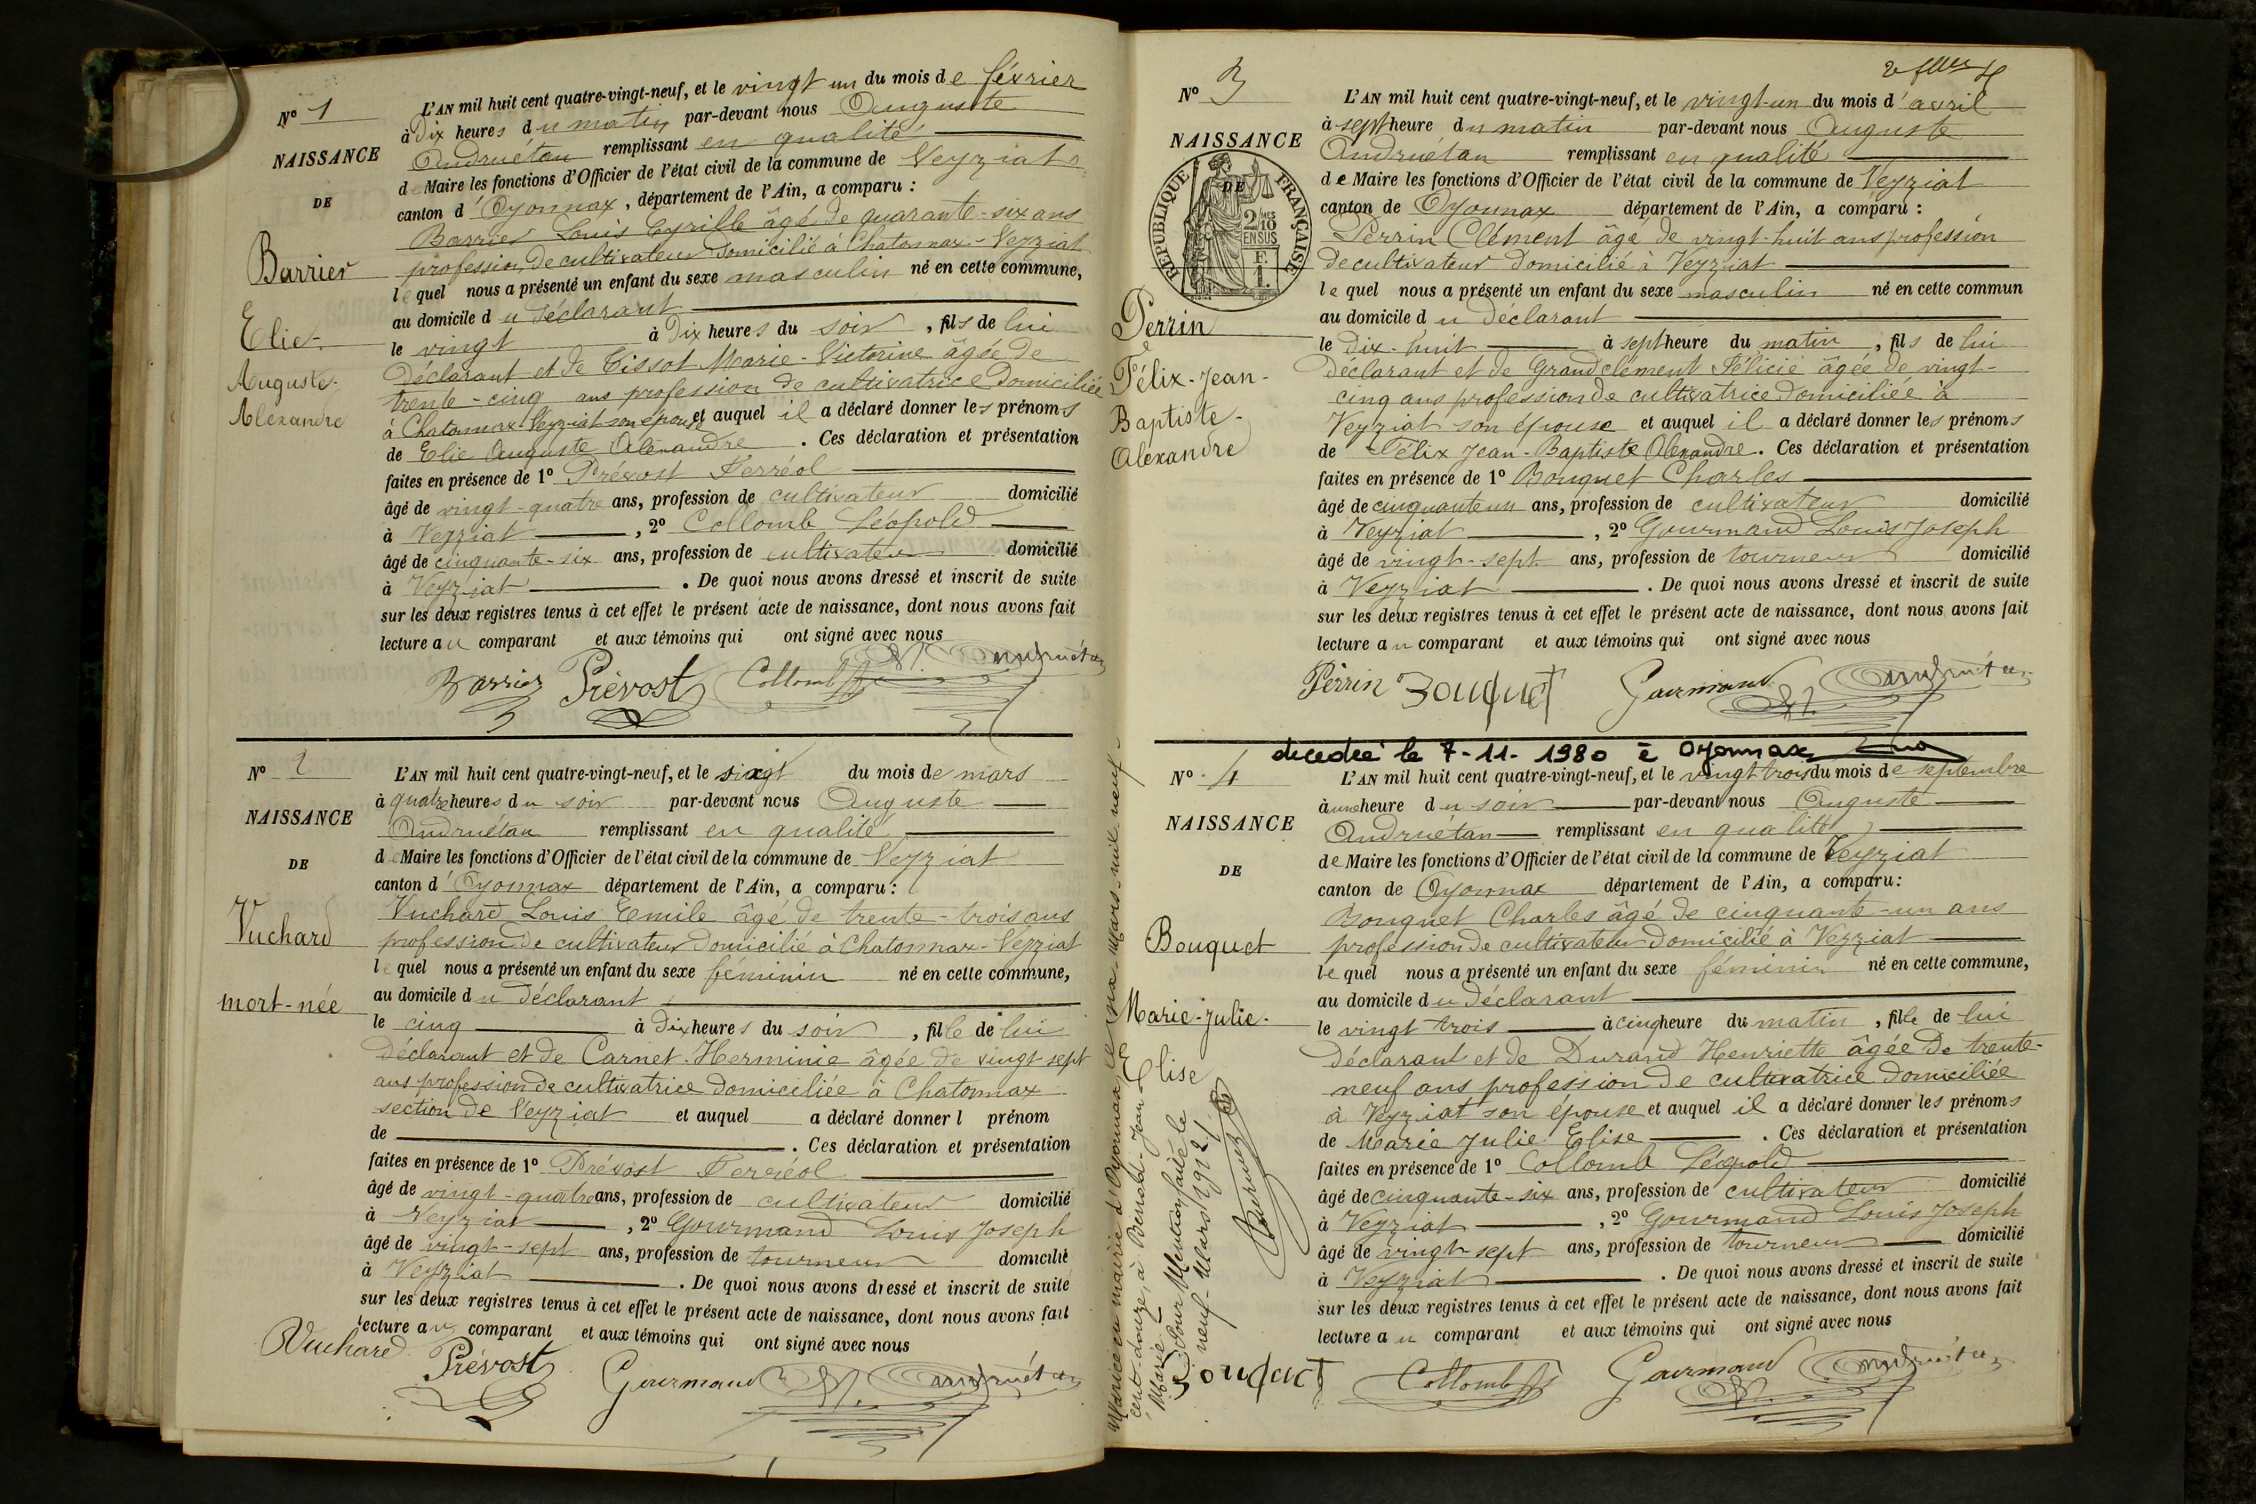 N° 1
NAISSANCE
DE
Barrier
Elie-
Auguste-
Alexandre
L'AN mil huit cent quatre-vingt-neuf, et le vingt un du mois de février
à Dix heures du matin par-devant nous Auguste
Andruétan remplissant en qualité
de Maire les fonctions d'Officier de l'état civil de la commune de Veyziat
canton d'Oyonnax, département de l'Ain, a comparu :
Barrier Louis Cyrille âgé de quarante-six ans
profession de cultivateur domicilié à Chatonnax-Veyziat
lequel nous a présenté un enfant du sexe masculin né en cette commune,
au domicile du déclarant
le vingt à Dix heures du soir, fils de lui
Déclarant et de Tissot Marie-Victorine âgée de
trente-cinq ans profession de cultivatrice domiciliée
à Chatonnax-Veyziat son épouse et auquel il a déclaré donner les prénoms
de Elie Auguste Alexandre. Ces déclaration et présentation
faites en présence de 1° Prévost Ferréol
âgé de vingt-quatre ans, profession de cultivateur domicilié
à Veyziat, 2° Collomb Léopold
âgé de cinquante-six ans, profession de cultivateur domicilié
à Veyziat. De quoi nous avons dressé et inscrit de suite
sur les deux registres tenus à cet effet le présent acte de naissance, dont nous avons fait
lecture au comparant et aux témoins qui ont signé avec nous
Barrier Prévost Collomb Andruétan
N° 2
NAISSANCE
DE
Vuchard
mort-née
L'AN mil huit cent quatre-vingt-neuf, et le six du mois de mars
à quatre heures du soir par-devant nous Auguste
Andruétan remplissant en qualité
de Maire les fonctions d'Officier de l'état civil de la commune de Veyziat
canton d'Oyonnax département de l'Ain, a comparu :
Vuchard Louis Emile âgé de trente-trois ans
profession de cultivateur domicilié à Chatonnax-Veyziat
lequel nous a présenté un enfant du sexe féminin né en cette commune,
au domicile du déclarant
le cinq à dix heures du soir, fille de lui
Déclarant et de Carnet Herminie âgée de vingt-sept
ans profession de cultivatrice domiciliée à Chatonnax
section de Veyziat et auquel a déclaré donner l prénom
de . Ces déclaration et présentation
faites en présence de 1° Prévost Ferréol
âgé de vingt-quatre ans, profession de cultivateur domicilié
à Veyziat, 2° Gourmand Louis Joseph
âgé de vingt-sept ans, profession de tourneur domicilié
à Veyziat. De quoi nous avons dressé et inscrit de suite
sur les deux registres tenus à cet effet le présent acte de naissance, dont nous avons fait
lecture au comparant et aux témoins qui ont signé avec nous
Vuchard Prévost Gourmand Andruétan
N° 3
NAISSANCE
DE
RÉPUBLIQUE FRANÇAISE
2 MES
10
EN SUS
F.
1.
Perrin
Félix-Jean-
Baptiste-
Alexandre
L'AN mil huit cent quatre-vingt-neuf, et le vingt-un du mois d'avril
à sept heure du matin par-devant nous Auguste
Andruétan remplissant en qualité
de Maire les fonctions d'Officier de l'état civil de la commune de Veyziat
canton de Oyonnax département de l'Ain, a comparu :
Perrin Clément âgé de vingt-huit ans profession
de cultivateur domicilié à Veyziat
lequel nous a présenté un enfant du sexe masculin né en cette commun
au domicile du déclarant
le dix-huit à sept heure du matin, fils de lui
déclarant et de Grandclément Félicie âgée de vingt-
cinq ans profession de cultivatrice domiciliée à
Veyziat son épouse et auquel il a déclaré donner les prénoms
de Félix Jean-Baptiste Alexandre. Ces déclaration et présentation
faites en présence de 1° Bouquet Charles
âgé de cinquante un ans, profession de cultivateur domicilié
à Veyziat, 2° Gourmand Louis Joseph
âgé de vingt-sept ans, profession de tourneur domicilié
à Veyziat. De quoi nous avons dressé et inscrit de suite
sur les deux registres tenus à cet effet le présent acte de naissance, dont nous avons fait
lecture au comparant et aux témoins qui ont signé avec nous
Perrin Bouquet Gourmand Andruétan
decedée le 7-11-1980 à Oyonnax
N° 4
NAISSANCE
DE
Bouquet
Marie-Julie-
Elise
L'AN mil huit cent quatre-vingt-neuf, et le vingt trois du mois de septembre
à une heure du soir par-devant nous Auguste
Andruétan remplissant en qualité
de Maire les fonctions d'Officier de l'état civil de la commune de Veyziat
canton de Oyonnax département de l'Ain, a comparu :
Bouquet Charles âgé de cinquante-un ans
profession de cultivateur domicilié à Veyziat
lequel nous a présenté un enfant du sexe féminin né en cette commune,
au domicile du déclarant
le vingt trois à cinq heure du matin, fille de lui
déclarant et de Durand Henriette âgée de trente-
neuf ans profession de cultivatrice domiciliée
à Veyziat son épouse et auquel il a déclaré donner les prénoms
de Marie Julie Elise. Ces déclaration et présentation
faites en présence de 1° Collomb Léopold
âgé de cinquante-six ans, profession de cultivateur domicilié
à Veyziat, 2° Gourmand Louis Joseph
âgé de vingt sept ans, profession de tourneur domicilié
à Veyziat. De quoi nous avons dressé et inscrit de suite
sur les deux registres tenus à cet effet le présent acte de naissance, dont nous avons fait
lecture au comparant et aux témoins qui ont signé avec nous
Bouquet Collomb Gourmand Andruétan
Mariée en mairie d'Oyonnax le Mars mil neuf-
cent-douze, à Jean-
Marie
Pour Mention faite le
neuf Mars 1912